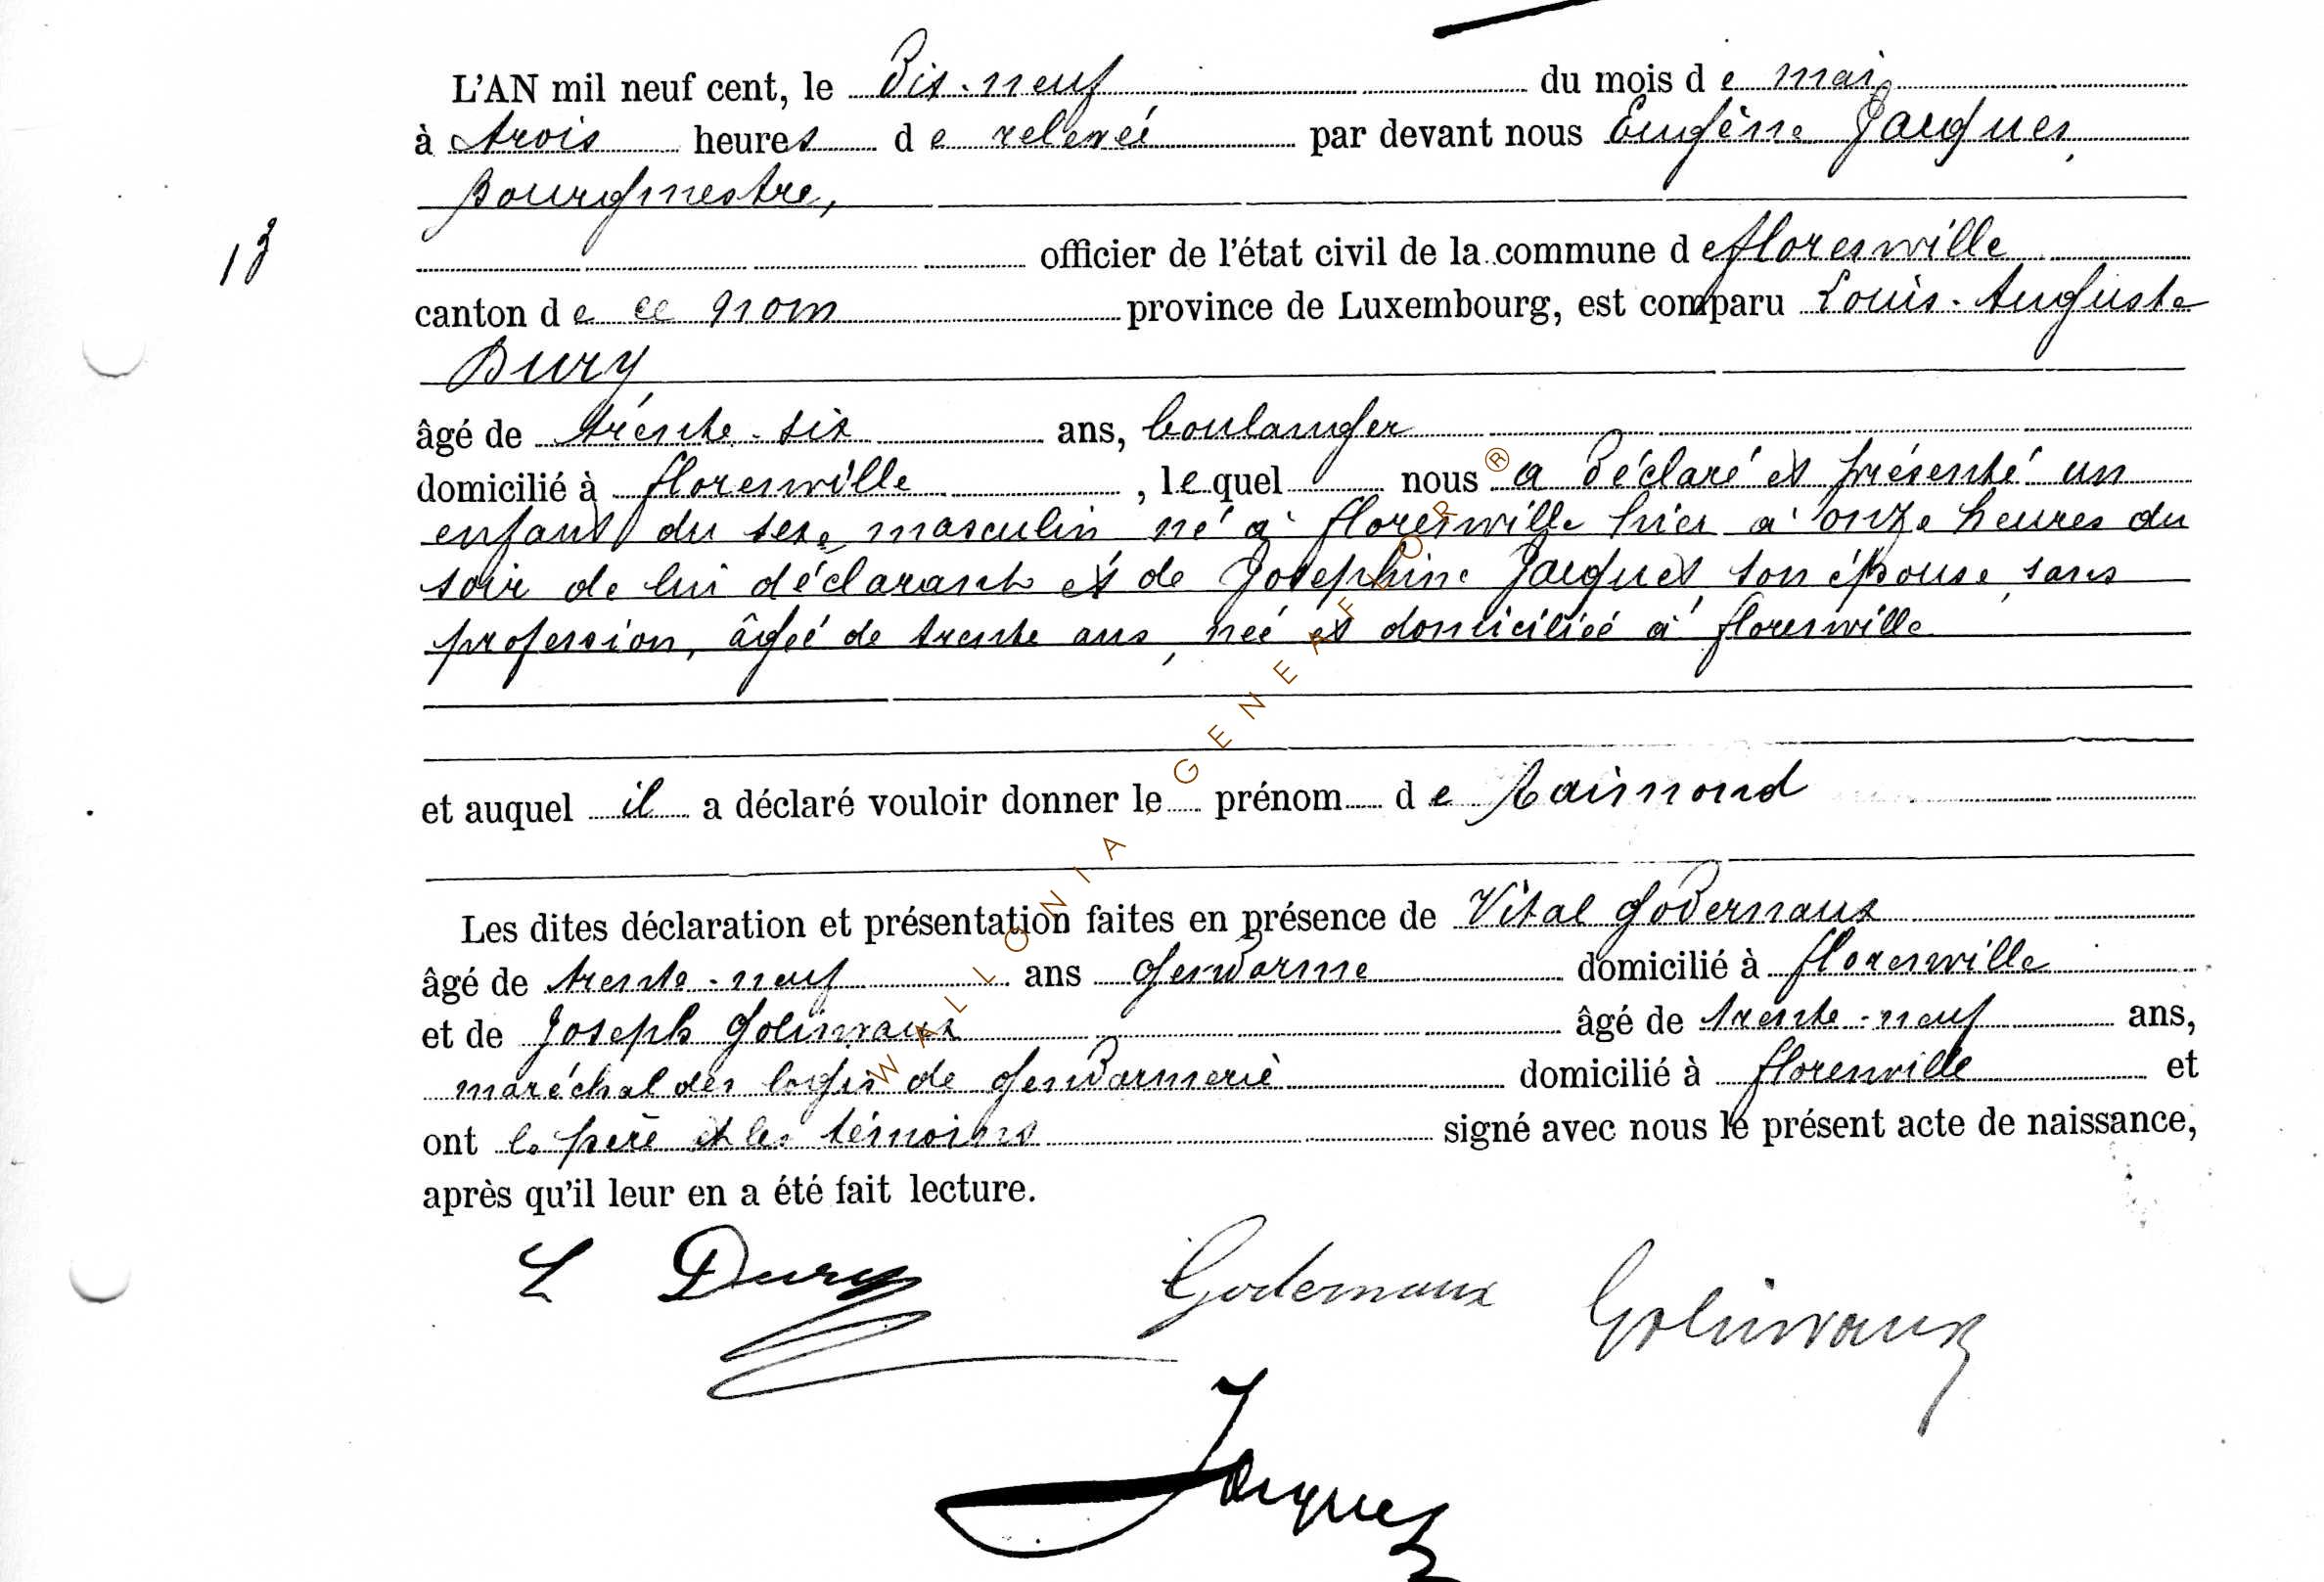 L'AN mil neuf cent, le Dix-neuf du mois de mai
à trois heures de relevée par devant nous Eugène Jacques,
Bourgmestre,
officier de l'état civil de la commune de florenville
13
canton de ce nom province de Luxembourg, est comparu Louis-Auguste
Dury
âgé de trente-six ans, boulanger
domicilié à florenville, lequel nous a déclaré et présenté un
enfant du sexe masculin né à florenville hier à onze heures du
soir de lui déclarant et de Josephine Jacques, son épouse, sans
profession, âgée de trente ans, née et domiciliée à florenville
et auquel il a déclaré vouloir donner le prénom de Raimond
Les dites déclaration et présentation faites en présence de Vital Godernaux
âgé de trente-neuf ans gendarme domicilié à florenville
et de Joseph Golinvaux âgé de trente-neuf ans,
maréchal des logis de gendarmerie domicilié à florenville et
ont le père et les témoins signé avec nous le présent acte de naissance,
après qu'il leur en a été fait lecture.
L Dury Godernaux Golinvaux
Jacques
WALLONIA GENEAFLOR ®